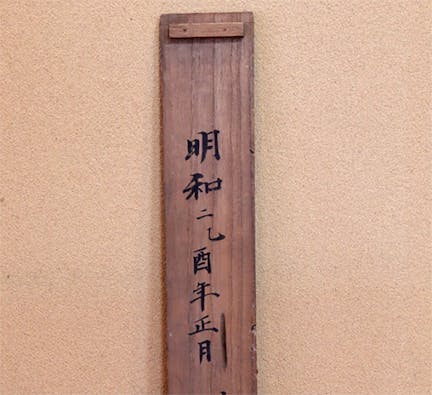 明和二乙酉年正月